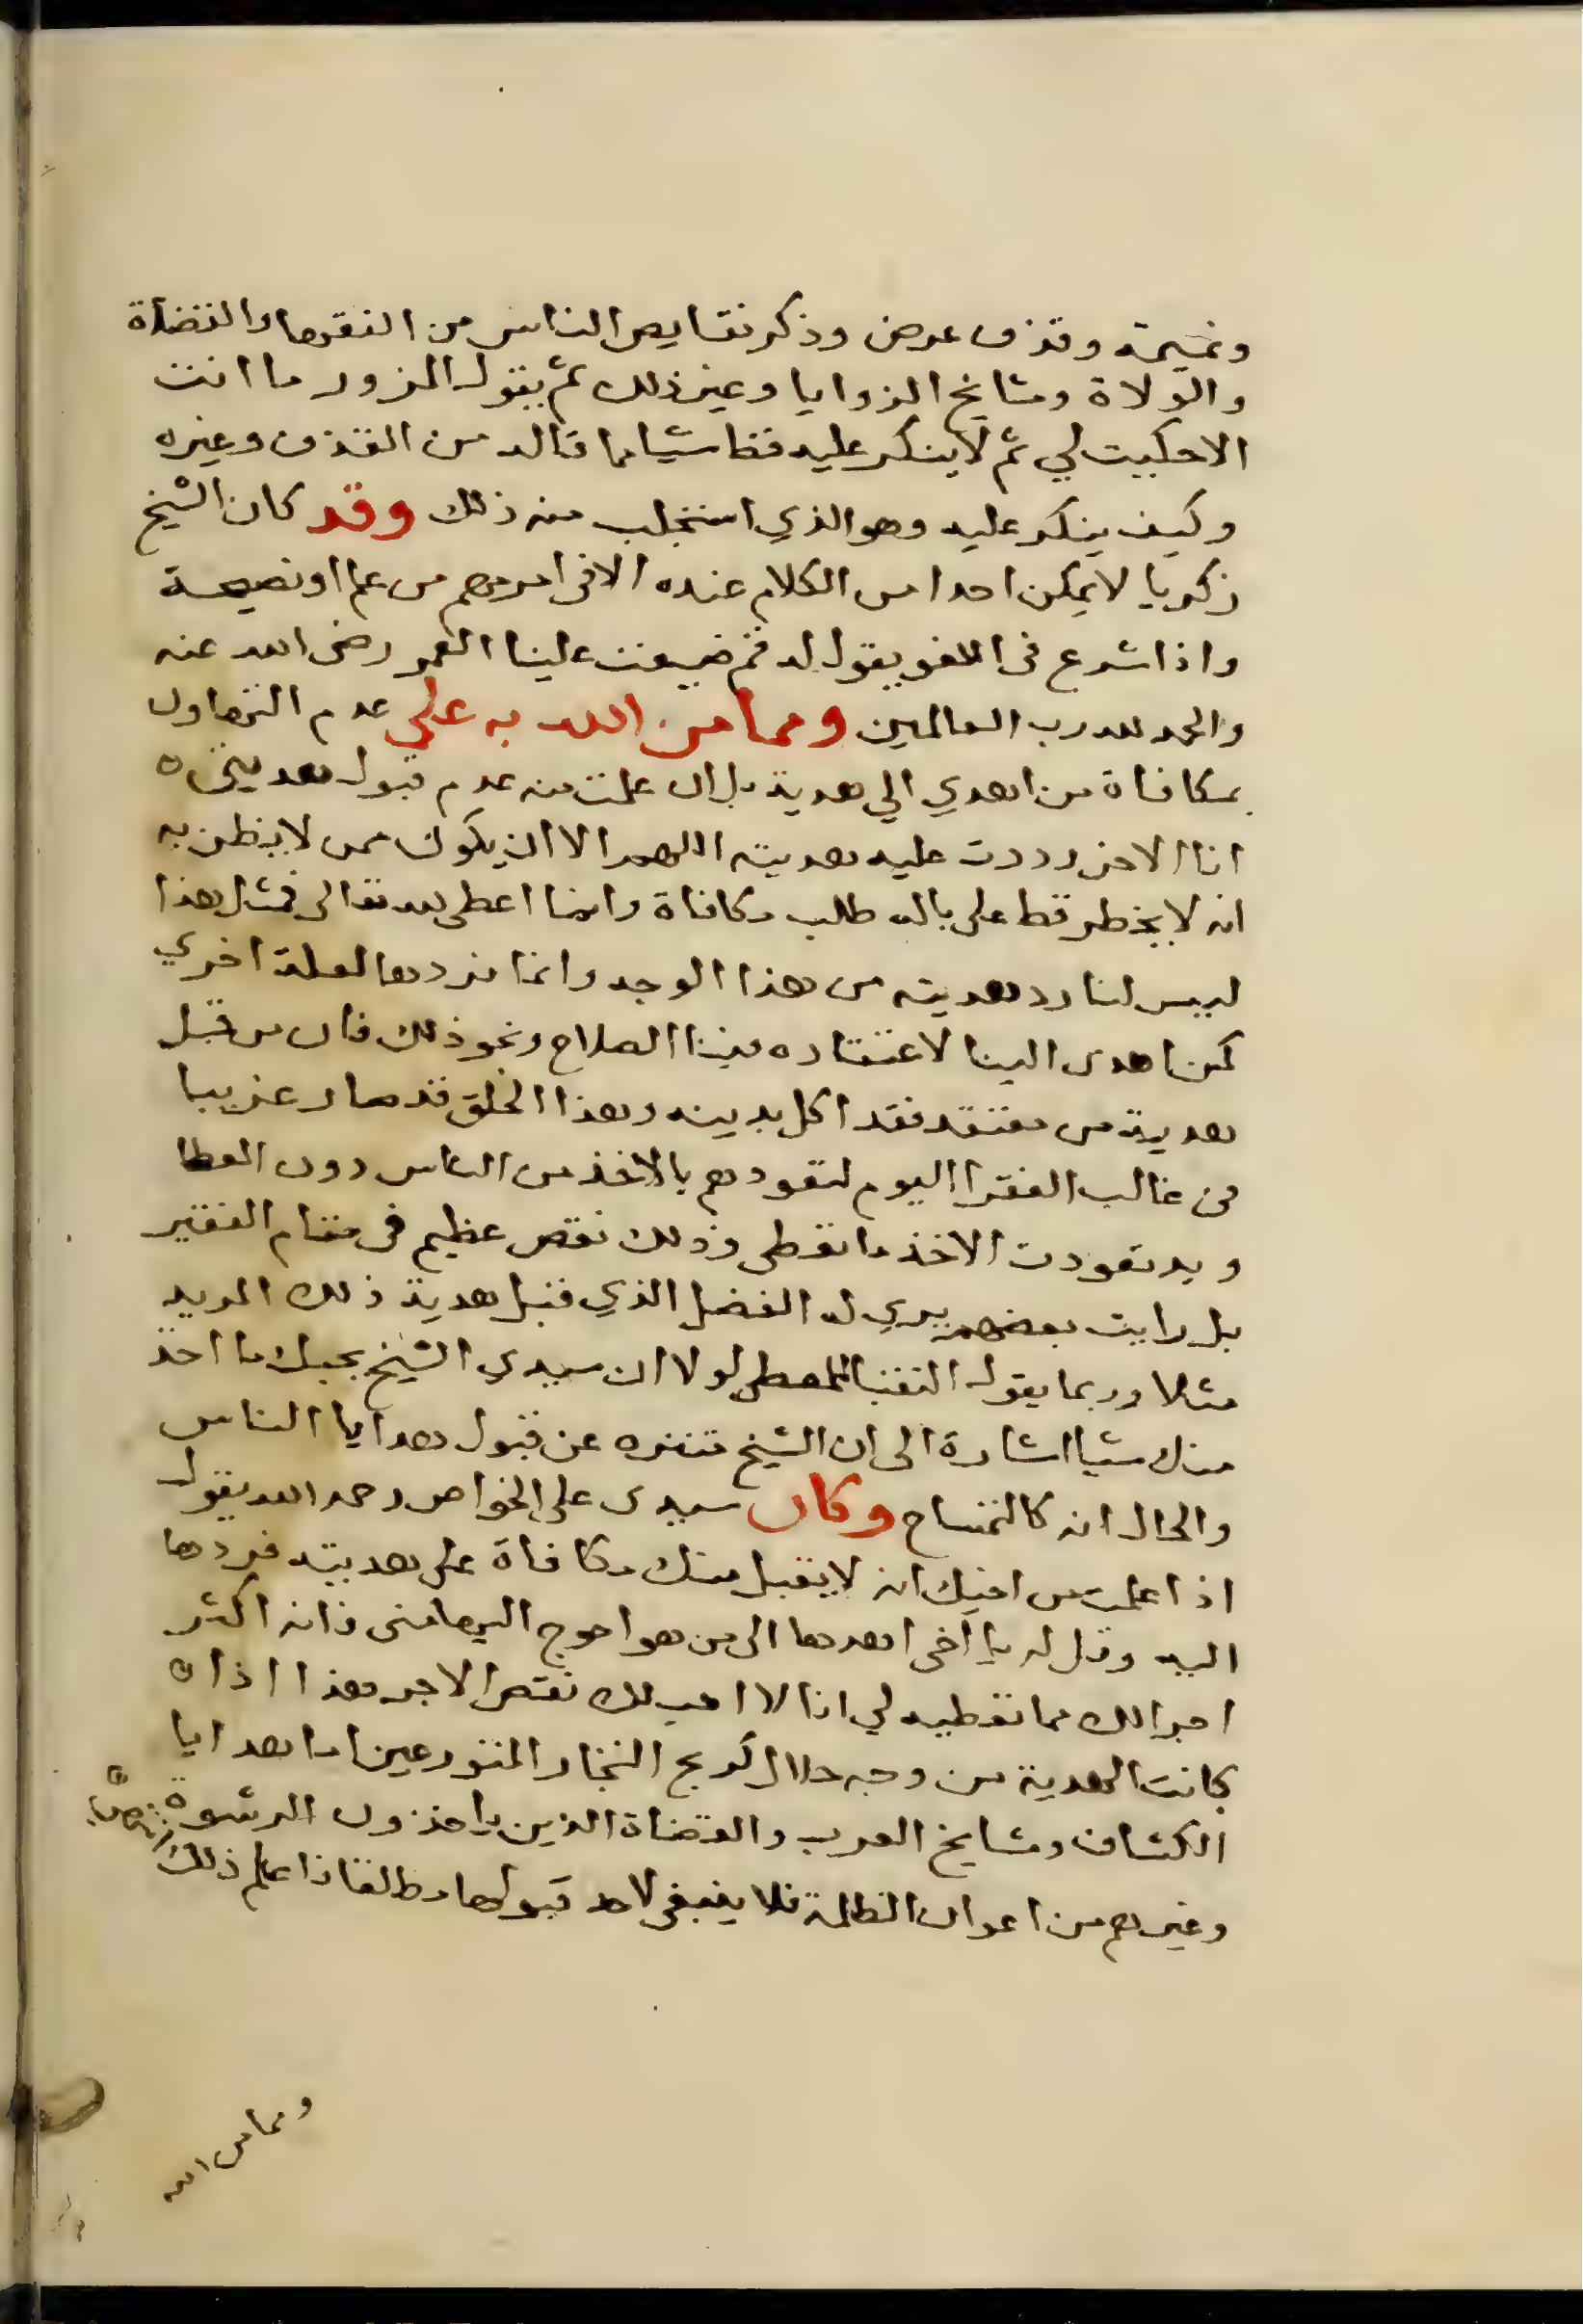 ونميمة وقذف عرض وذكر نقايص الناس من الفقرا والقضاة
والولاة ومشايخ الزوايا وغير ذلك ثم يقول المزور ما انت
الا حكيت لي ثم لا ينكر عليه قط شيا مما قاله من القذف وغيره
وكيف ينكر عليه وهو الذي استجلب منه ذلك وقد كان الشيخ
زكريا لا يمكن احدا من الكلام عنده الا في امر مهم من علم او نصيحة
واذا شرع في اللغو يقول له قم ضيعت علينا العمر رضى الله عنه
والحمد لله رب العالمين ومما من الله به علي عدم التهاون
بمكافاة من اهدي الي هدية بل ان علمت منه عدم قبول هديتى ه
انا الاخر رددت عليه هديته اللهم الا ان يكون ممن لا يظن به
انه لا يخطر قط على باله طلب مكافاة وانما اعطى لله تعالى فمثل هذا
ليس لنا رد هديته من هذا الوجه وانما نردها لعلة اخري
كمن اهدى الينا لاعتقاده فينا الصلاح ونحو ذلك فان من قبل
هدية من معتقد فقد اكل بدينه وهذا الخلق قد صار غريبا
في غالب الفقرا اليوم لتعودهم بالاخذ من الناس دون العطا
ويد تعودت الاخذ ما تعطى وذلك نقص عظيم في مقام الفقير
بل رايت بعضهم يري له الفضل الذي قبل هدية ذلك المريد
مثلا وربما يقول النقيب للمعطى لولا ان سيدي الشيخ يحبك ما اخذ
منك شيا اشارة الى ان الشيخ متنزه عن قبول هدايا الناس
والحال انه كالتمساح وكان سيدى على الخواص رحمه الله يقول
اذا علمت من اخيك انه لا يقبل منك مكافاة على هديته فردها
اليه وقل له يا اخى اهدها الى من هو احوج اليها منى فانه اكثر
اجرا لك مما تعطيه لي انا لا احب لك نقص الاجر هذا اذا ه
كانت الهدية من وجه حلال كربح التجار المتورعين اما هدايا
الكشاف ومشايخ العرب والقضاة الذين ياخذون الرشوة
وغيرهم من اعوان الظلمة فلا ينبغى لاحد قبولها مطلقا اذا علم ذلك
ومما من الله